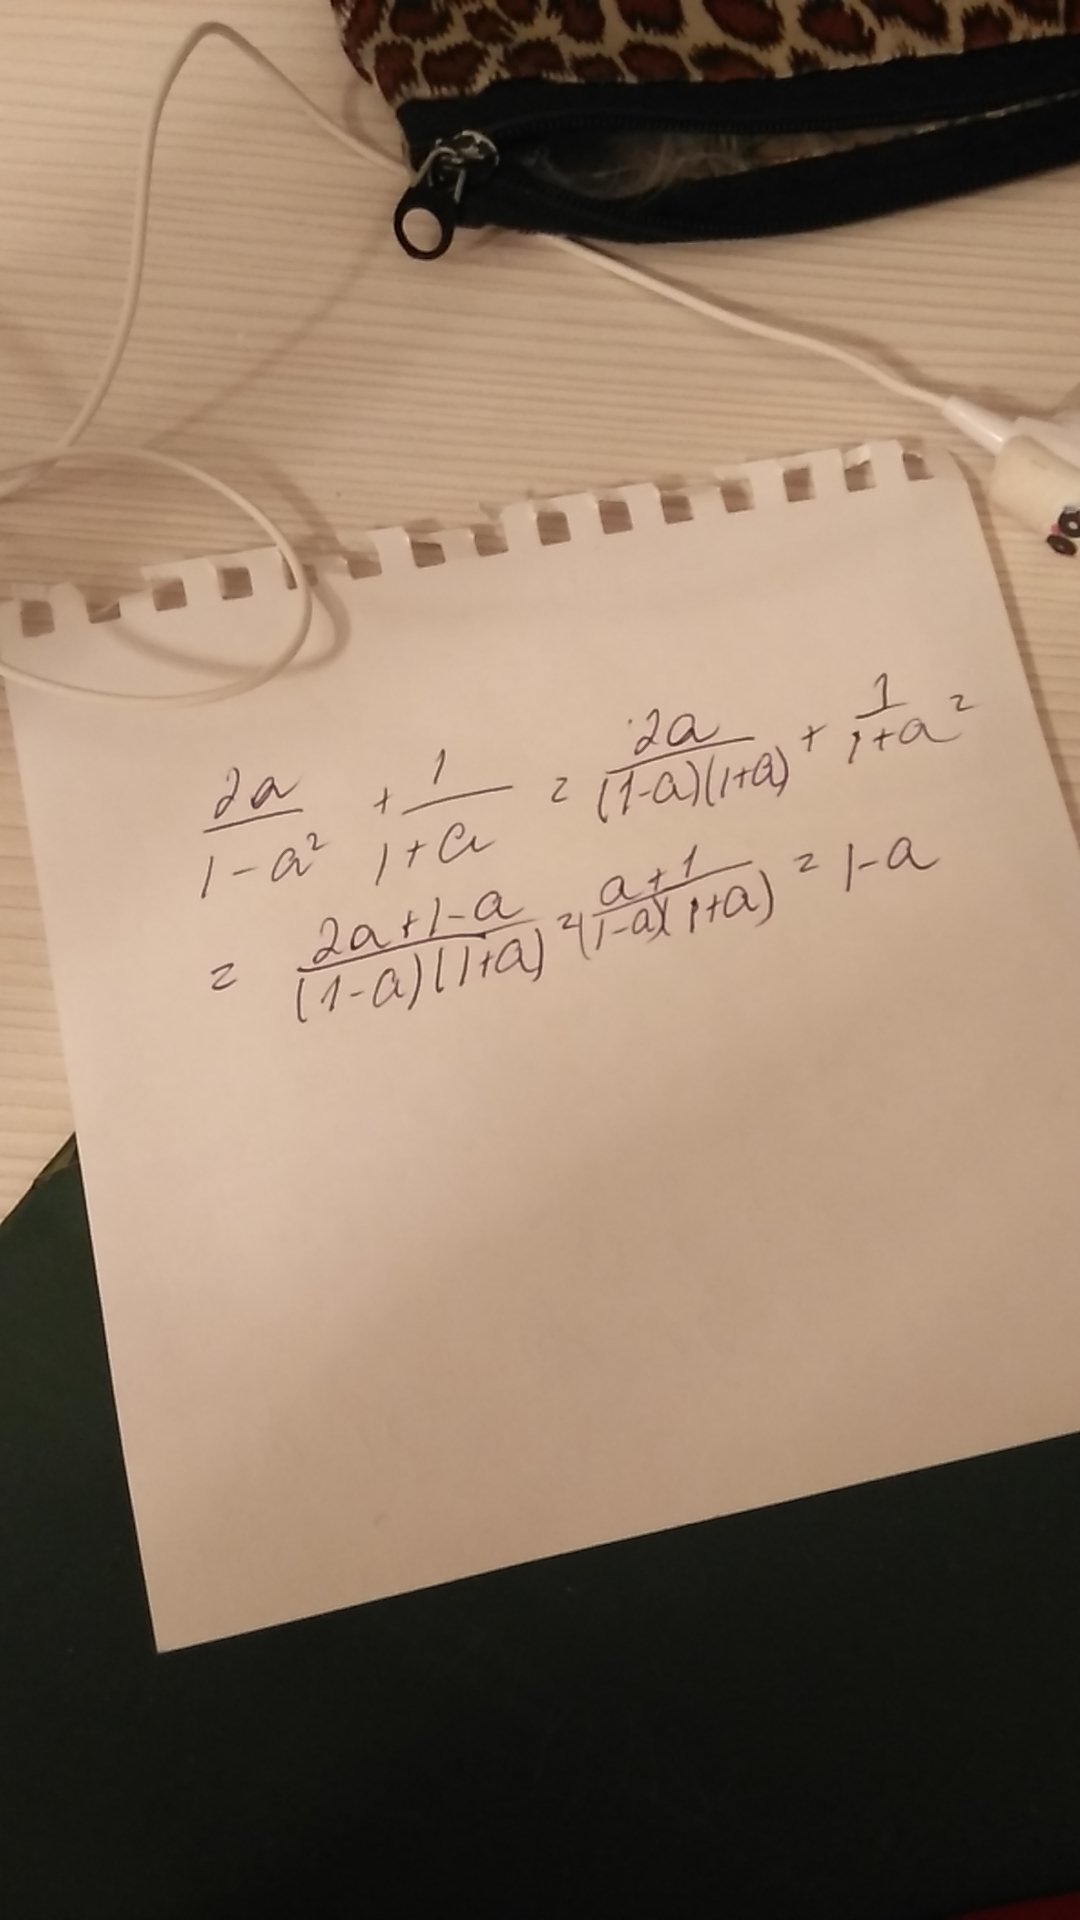 2a/(1-a²) + 1/(1+a) = 2a/((1-a)(1+a)) + 1/(1+a) =
= (2a+1-a)/((1-a)(1+a)) = (a+1)/((1-a)(1+a)) = 1-a